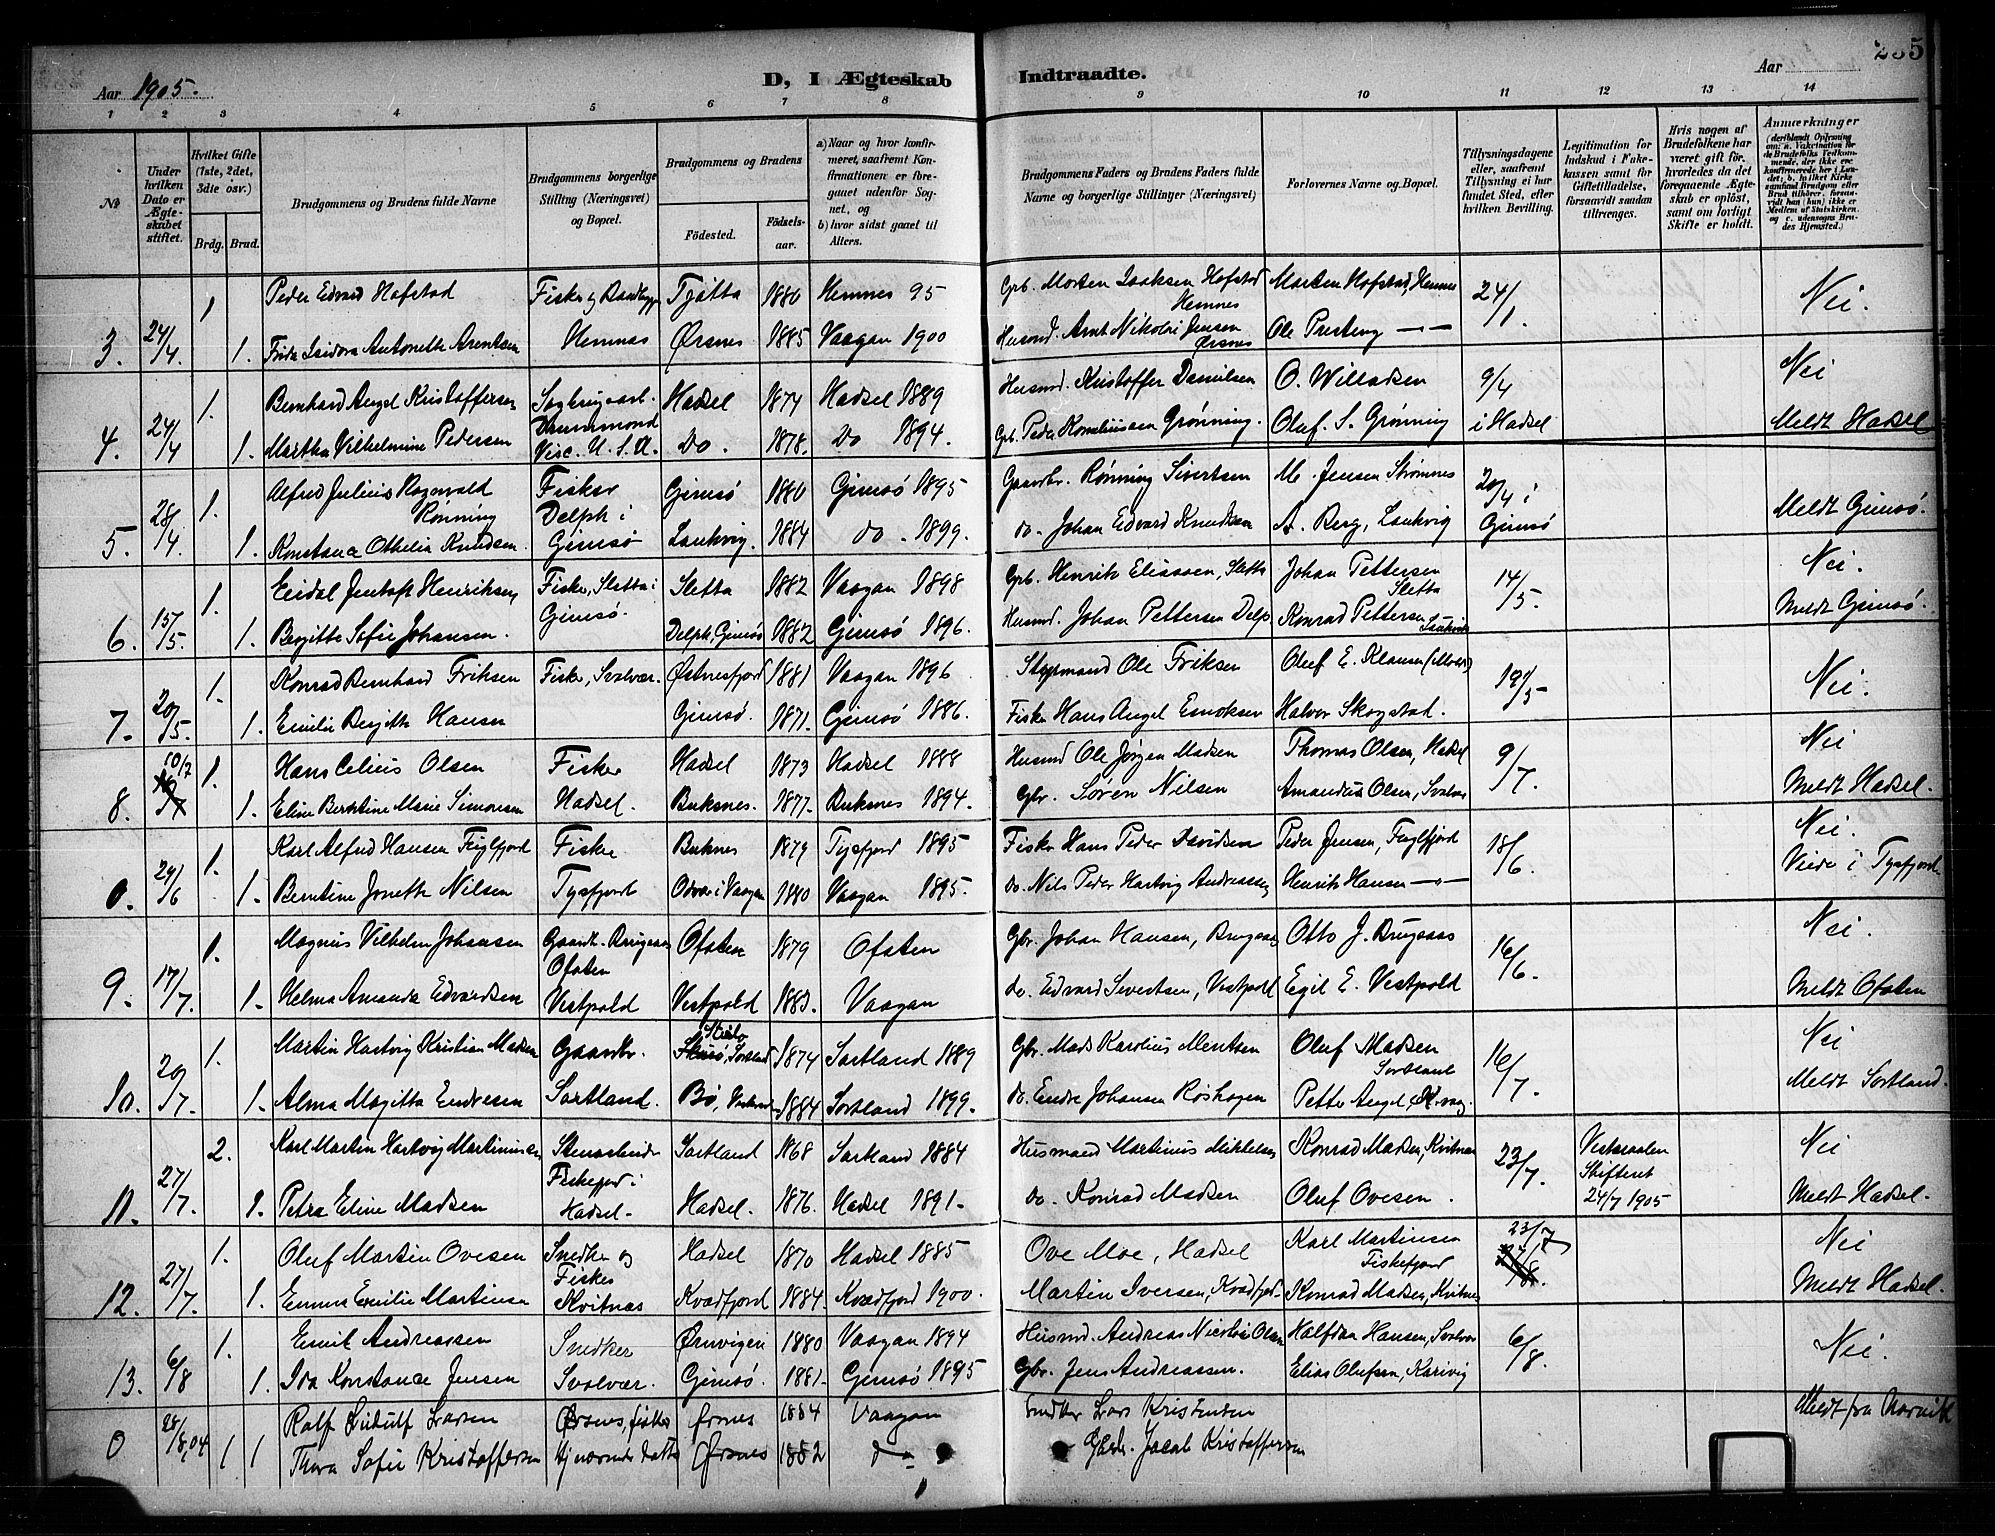 Aar 1905.
D, I Ægteskab Indtraadte.
Aar
235
1 2 3 4 5 6 7 8 9 10 11 12 13 14
№
Under hvilken Dato er Ægteskabet stiftet.
Hvilket Gifte (1ste, 2det, 3die osv.)
Brdg. Brud.
Brudgommens og Brudens fulde Navne
Brudgommens borgerlige Stilling (Næringsvei) og Bopæl.
Brudgommens og Brudens
Fødested. Fødsels-aar.
a) Naar og hvor konfirmeret, saafremt Konfirmationen er foregaaet udenfor Sognet, og
b) hvor sidst gaaet til Alters.
Brudgommens Faders og Brudens Faders fulde Navne og borgerlige Stillinger (Næringsvei)
Forlovernes Navne og Bopæl.
Tillysningsdagene eller, saafremt Tillysning ei har fundet Sted, efter hvilken Bevilling.
Legitimation for Indskud i Enkekassen samt for Giftetilladelse, forsaavidt saadan tiltrænges.
Hvis nogen af Brudefolkene har været gift før, hvorledes da det foregaaende Ægteskab er opløst, samt om lovligt Skifte er holdt.
Anmærkninger
3. 24/4 1 Peder Edvard Hafstad Fisker Tjøtta 1880 Hemnes 95 Grb. Morten Isaksen Hofstad Hemnes Morten Hofstad, Hemnes 24/1. Nei.
1. Frida Isidora Antonette Arentsen Hemnes Ørsnes 1885 Vaagan 1900 Husmd. Arnt Nikolai Jensen Ørsnes Ole Presteng —"—
4. 24/4 1. Bernhard Angel Kristoffersen Sagbrugsarb. Hadsel 1874 Hadsel 1889 Husmd. Kristoffer Danielsen O. Willadsen 9/4 Nei
1. Martha Vilhelmine Pedersen Drummond Visc. U.S.A. Do. 1878. Do 1894. Gb. Peder Korneliussen Grønning. Oluf. S. Grønning i Hadsel Meldt Hadsel
5. 28/4. 1. Alfred Julius Ragnvald Rønning Fisker Gimsø 1880 Gimsø 1895 Gaardbr. Rønning Sivertsen M. Jensen Strømnes 20/4 i Meldt Gimsø.
1. Konstance Othelia Knudsen. Delph i Gimsø Laukvig. 1884 do. 1899. do. Johan Edvard Knudsen A. Berg, Laukvig Gimsø
6. 15/5. 1. Eidal Jentoft Henriksen Fisker, Sletta i Sletta 1882 Vaagan 1898 Grb. Henrik Eliassen, Sletta Johan Pettersen Sletta 14/5. Nei.
1. Bergitte Sofie Johansen. Gimsø. Delph, Gimsø 1882 Gimsø 1896. Husmd. Johan Pettersen Delp Konrad Pettersen Laukvik Meldt Gimsø.
7. 20/5. 1. Konrad Bernhard Eriksen Fisker, Svolvær. Østnesfjord 1881 Vaagan 1896 Styrmand Ole Eriksen Oluf E. Klausen 19/5 Nei.
1. Emilie Bergitte Hansen Gimsø. 1871. Gimsø 1886. Fisker Hans Angel Enoksen Halvor Skogstad.
8. 10/7 1. Hans Celius Olsen Fisker Hadsel 1873 Hadsel 1888 Husmd Ole Jørgen Madsen Thomas Olsen, Hadsel 9/7. Nei
1. Eline Berntine Marie Simonsen Hadsel. Buksnes. 1877. Buksnes 1894. Gbr. Søren Nilsen Amandus Olsen, Svolvær Meldt Hadsel.
0. 29/6 1. Karl Alfred Hansen Fuglfjord Fisker Buksnes 1879 Tysfjord 1895 Fisker Hans Peder Davidsen Peder Jensen, Fuglfjord 18/6. Nei.
1. Berntine Jonette Nilsen Tysfjord Odvær i Vaagan 1880 Vaagan 1895. do. Nils Peder Hartvig Andreassen Henrik Hansen —"— Viede i Tysfjord
9. 17/7. 1. Magnus Vilhelm Johansen Ofoten Ofoten 1879 Ofoten Gbr. Johan Hansen, Otto J. 16/6. Nei.
1. Helma Amanda Edvardsen Vestpold Vestpold 1883. Vaagan do. Edvard Sivertsen, Vestpold Egil E. Vestpold Meldt Ofoten
10. 20/7. 1. Martin Hartvig Kristian Madsen Gaardbr. Sortland 1874 Sortland 1889 Gbr. Mads Karolius Mentsen Oluf Madsen Sortland 16/7. Nei
1. Alma Magitta Endresen Sortland. Bø, 1884 Sortland 1899. do. Endre Johansen Røshagen Petter Angel Meldt Sortland.
11. 27/7. 2. Karl Martin Hartvig Martinussen Sortland 1868 Sortland 1884 Husmand Martinus Mikkelsen Konrad Madsen, Kvitnes 23/7. Vesteraalen Skifteret 24/7 1905 Nei
1. Petra Eline Madsen Fiskefjord i Hadsel. Hadsel. 1876. Hadsel 1891. do. Konrad Madsen Oluf Ovesen. Meldt Hadsel.
12. 27/7. 1. Oluf Martin Ovesen Snedker og Fisker Hadsel 1870 Hadsel 1885 Ove Moe, Hadsel Karl Martinsen Fiskefjord 23/7 Nei
1. Emma Emilie Martinsen Kvitnes Kvædfjord 1884. Kvædfjord 1900. Martin Iversen, Kvædfjord Konrad Madsen, Kvitnes Meldt Hadsel.
13. 6/8 1. Emil Andreassen Snedker Ørnvigen 1880 Vaagan 1894 Husmd. Andreas Nicolai Olsen Halfdan Hansen, Svolvær 6/8. Nei.
1. Ida Konstance Jensen Svolvær. Gimsø. 1881. Gimsø 1895 Gbr. Jens Andreassen. Elias Olufsen, Karivig
0 28/8,04 1 Rolf Ludulf Larsen Ørsnes, fisker Ørsnes 1884 Vaagan Snedker Lars Kristensen Meldt fra Narvik
1 Thora Sofie Kristoffersen Ørsnes 1882 do Gbr. Jacob Kristoffersen